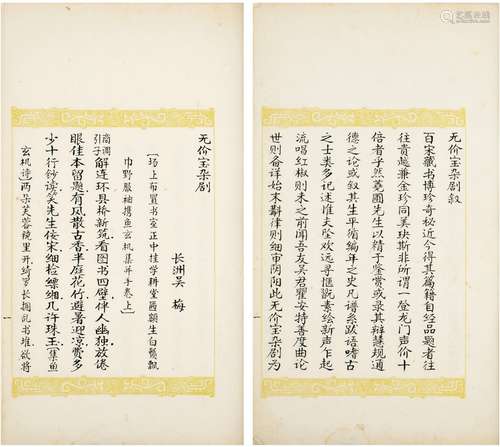 无价宝杂剧叙
百宋藏书博珍奇秘近今得其篇籍自经品题者往
往贵越兼金珍同美玦斯非所谓一登龙门声价十
倍者乎然荛圃先生以精于鉴赏或录其辩慧规通
德之论或叙其生平循编年之史凡谱系跋语嗜古
之士类多记述惟夫坠欢远寻素绘新声乍起
流唱红椒则未之前闻吾友吴君瞿安持善度曲论
世则备详始末辨律则细审阴阳此无价宝杂剧为
无价宝杂剧
长洲吴 梅
（场上布置书室正中挂学耕堂匾额生白鬓飘
巾野服袖携鱼玄机集并手卷上）
商调引子 解连环县桥新筑看图书四壁伴人幽独放倦
眼佳本留题有风散古香半庭花竹避暑迎凉费多
少十行钞读（笑）先佞宋细检缥缃几许珠玉（集鱼
玄机诗）两朵芙蓉镜里开绮罗长拥乱书堆欲将